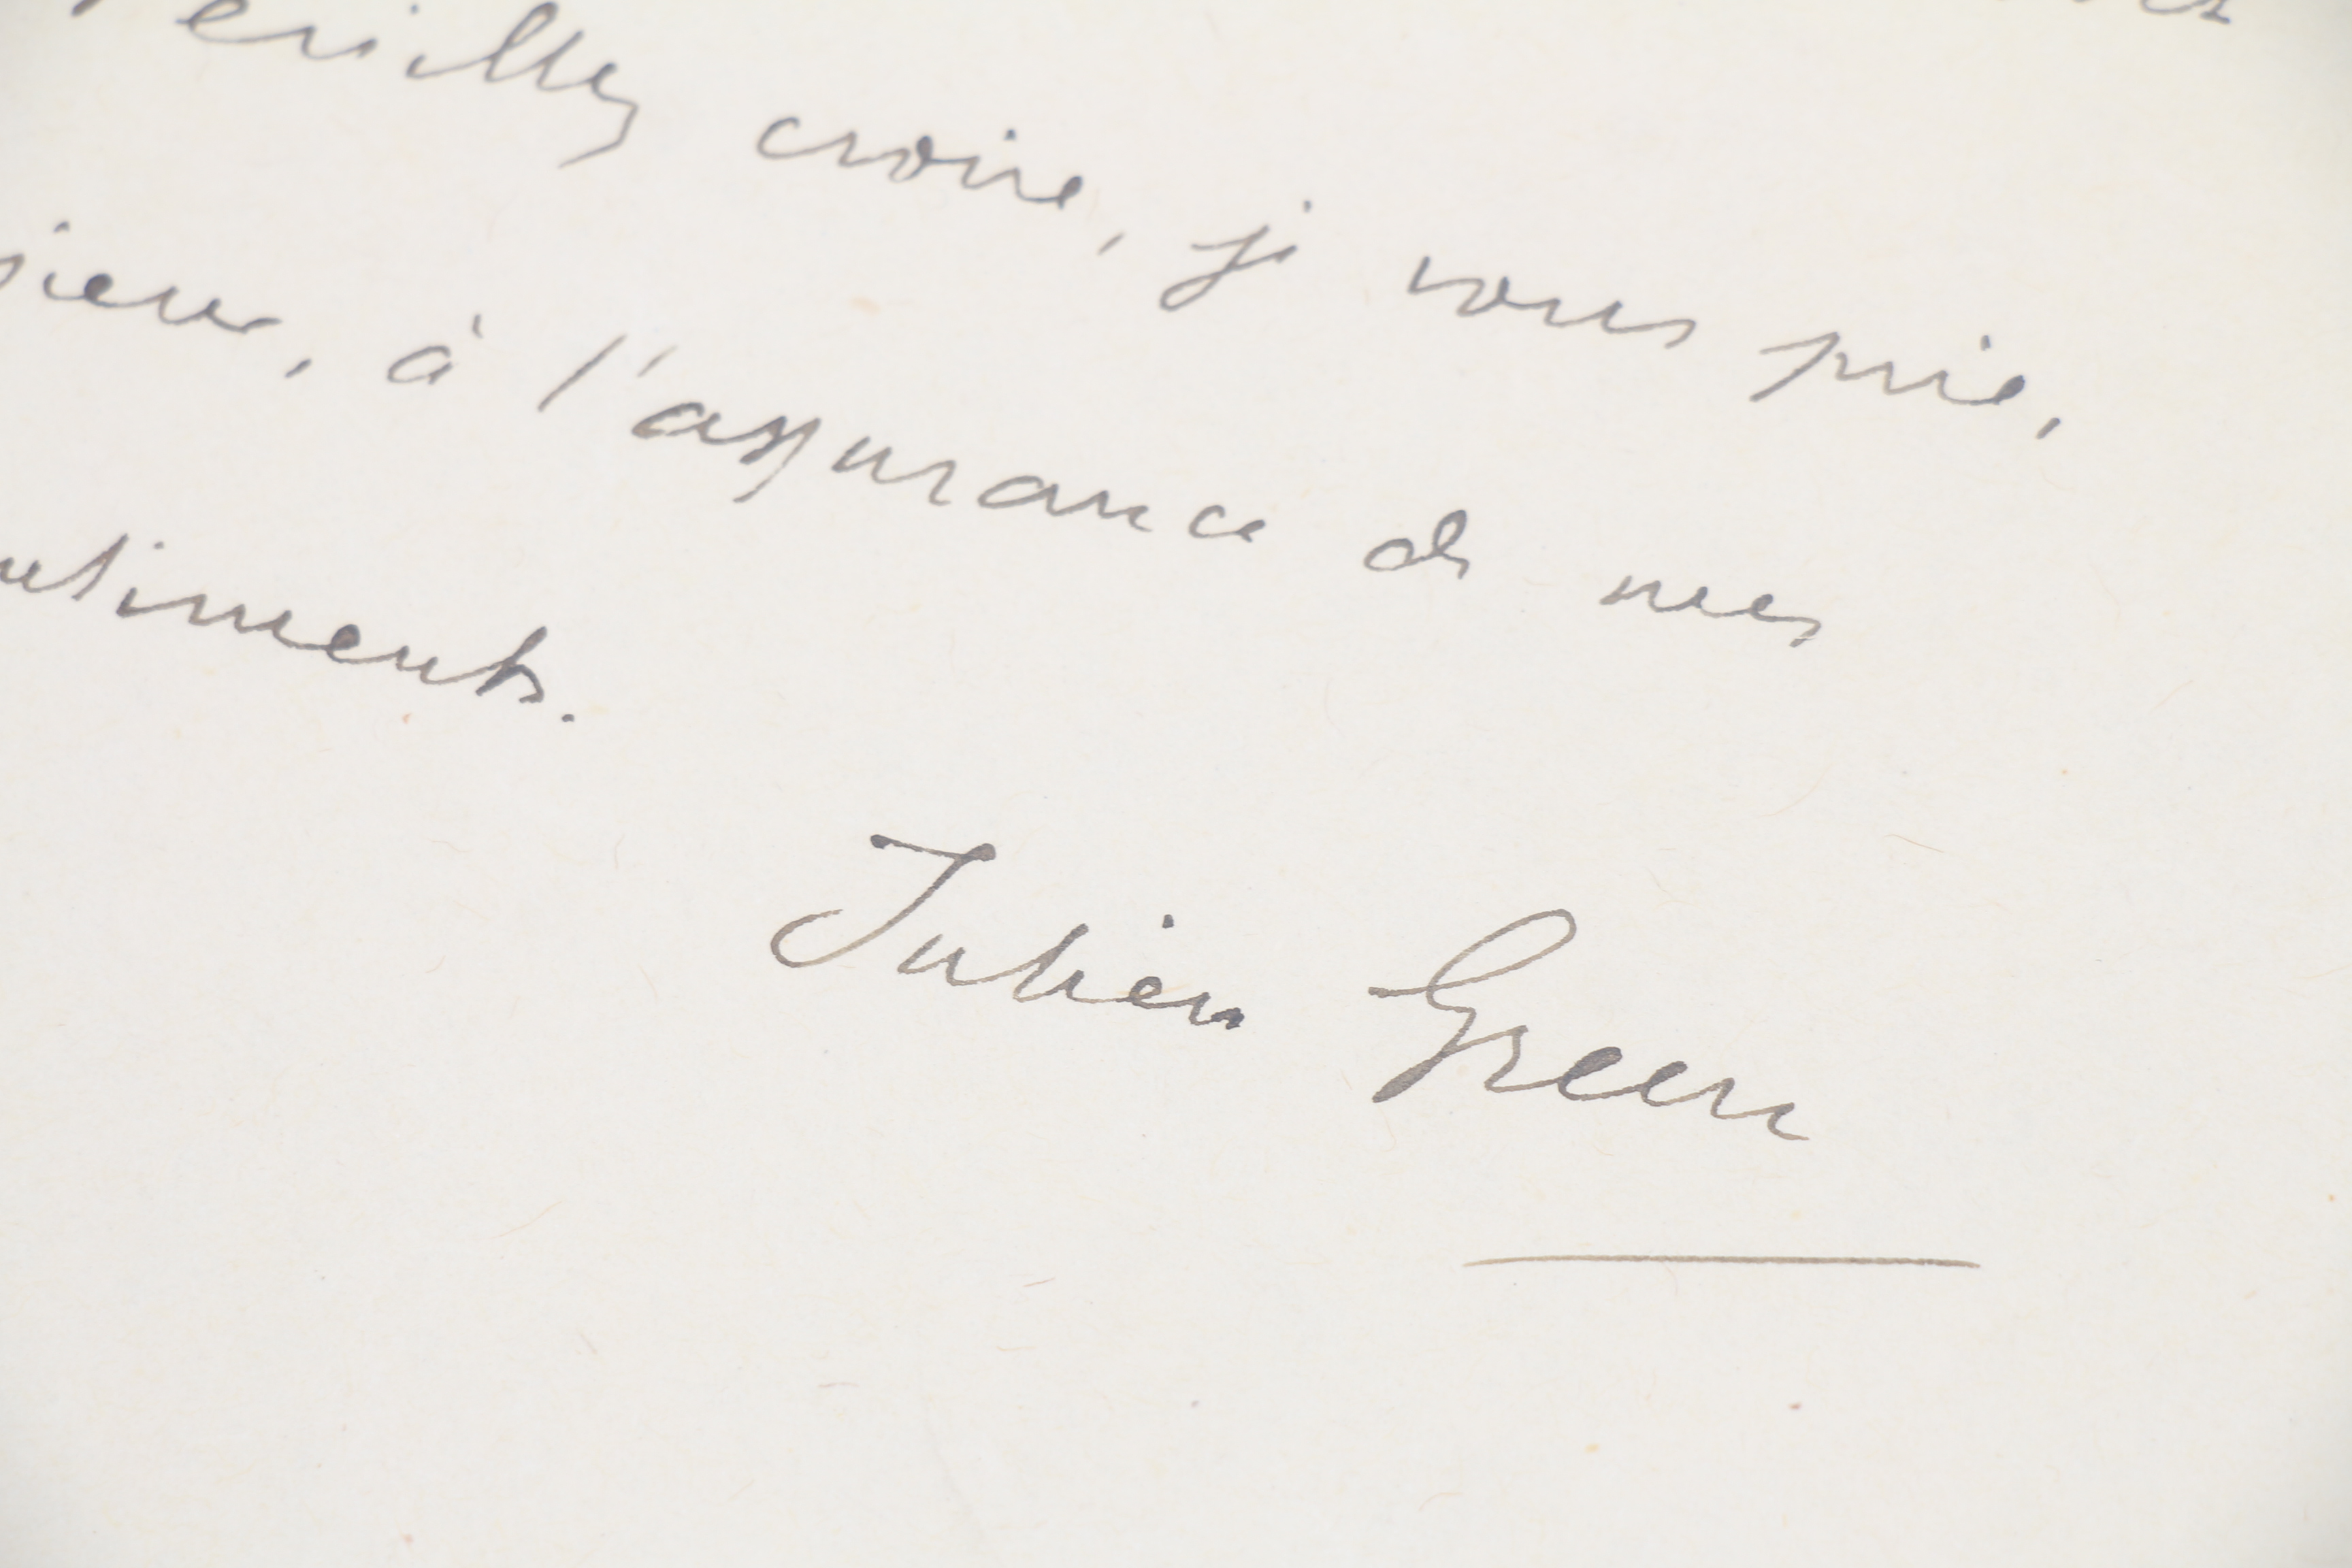 Veuillez croire, je vous prie,
sieur, à l'assurance de mes
ntiments.
Julien Green